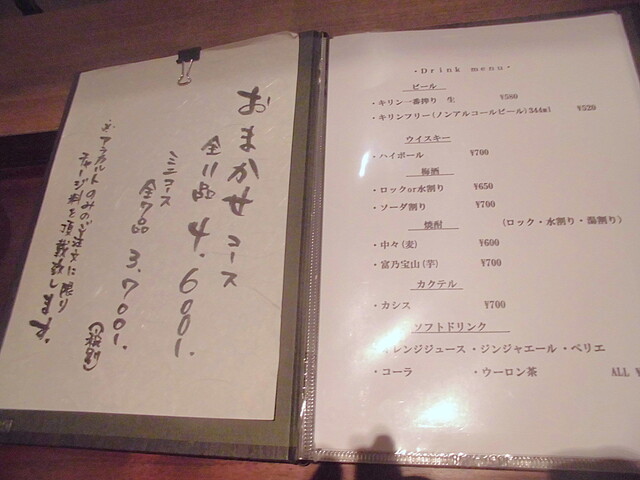 おまかせコース
全11品 4,600円
ミニコース
全7品 3,700円
※アラカルトのみのご注文に限り
チャージ料を頂戴致します。
・Drink menu・
ビール
・キリン一番搾り 生 ¥580
・キリンフリー(ノンアルコールビール)344ml ¥520
ウイスキー
・ハイボール ¥700
梅酒
・ロックor水割り ¥650
・ソーダ割り ¥700
焼酎 (ロック・水割り・湯割り)
・中々(麦) ¥600
・富乃宝山(芋) ¥700
カクテル
・カシス ¥700
ソフトドリンク
レンジジュース・ジンジャエール・ペリエ
・コーラ ・ウーロン茶 ALL ¥